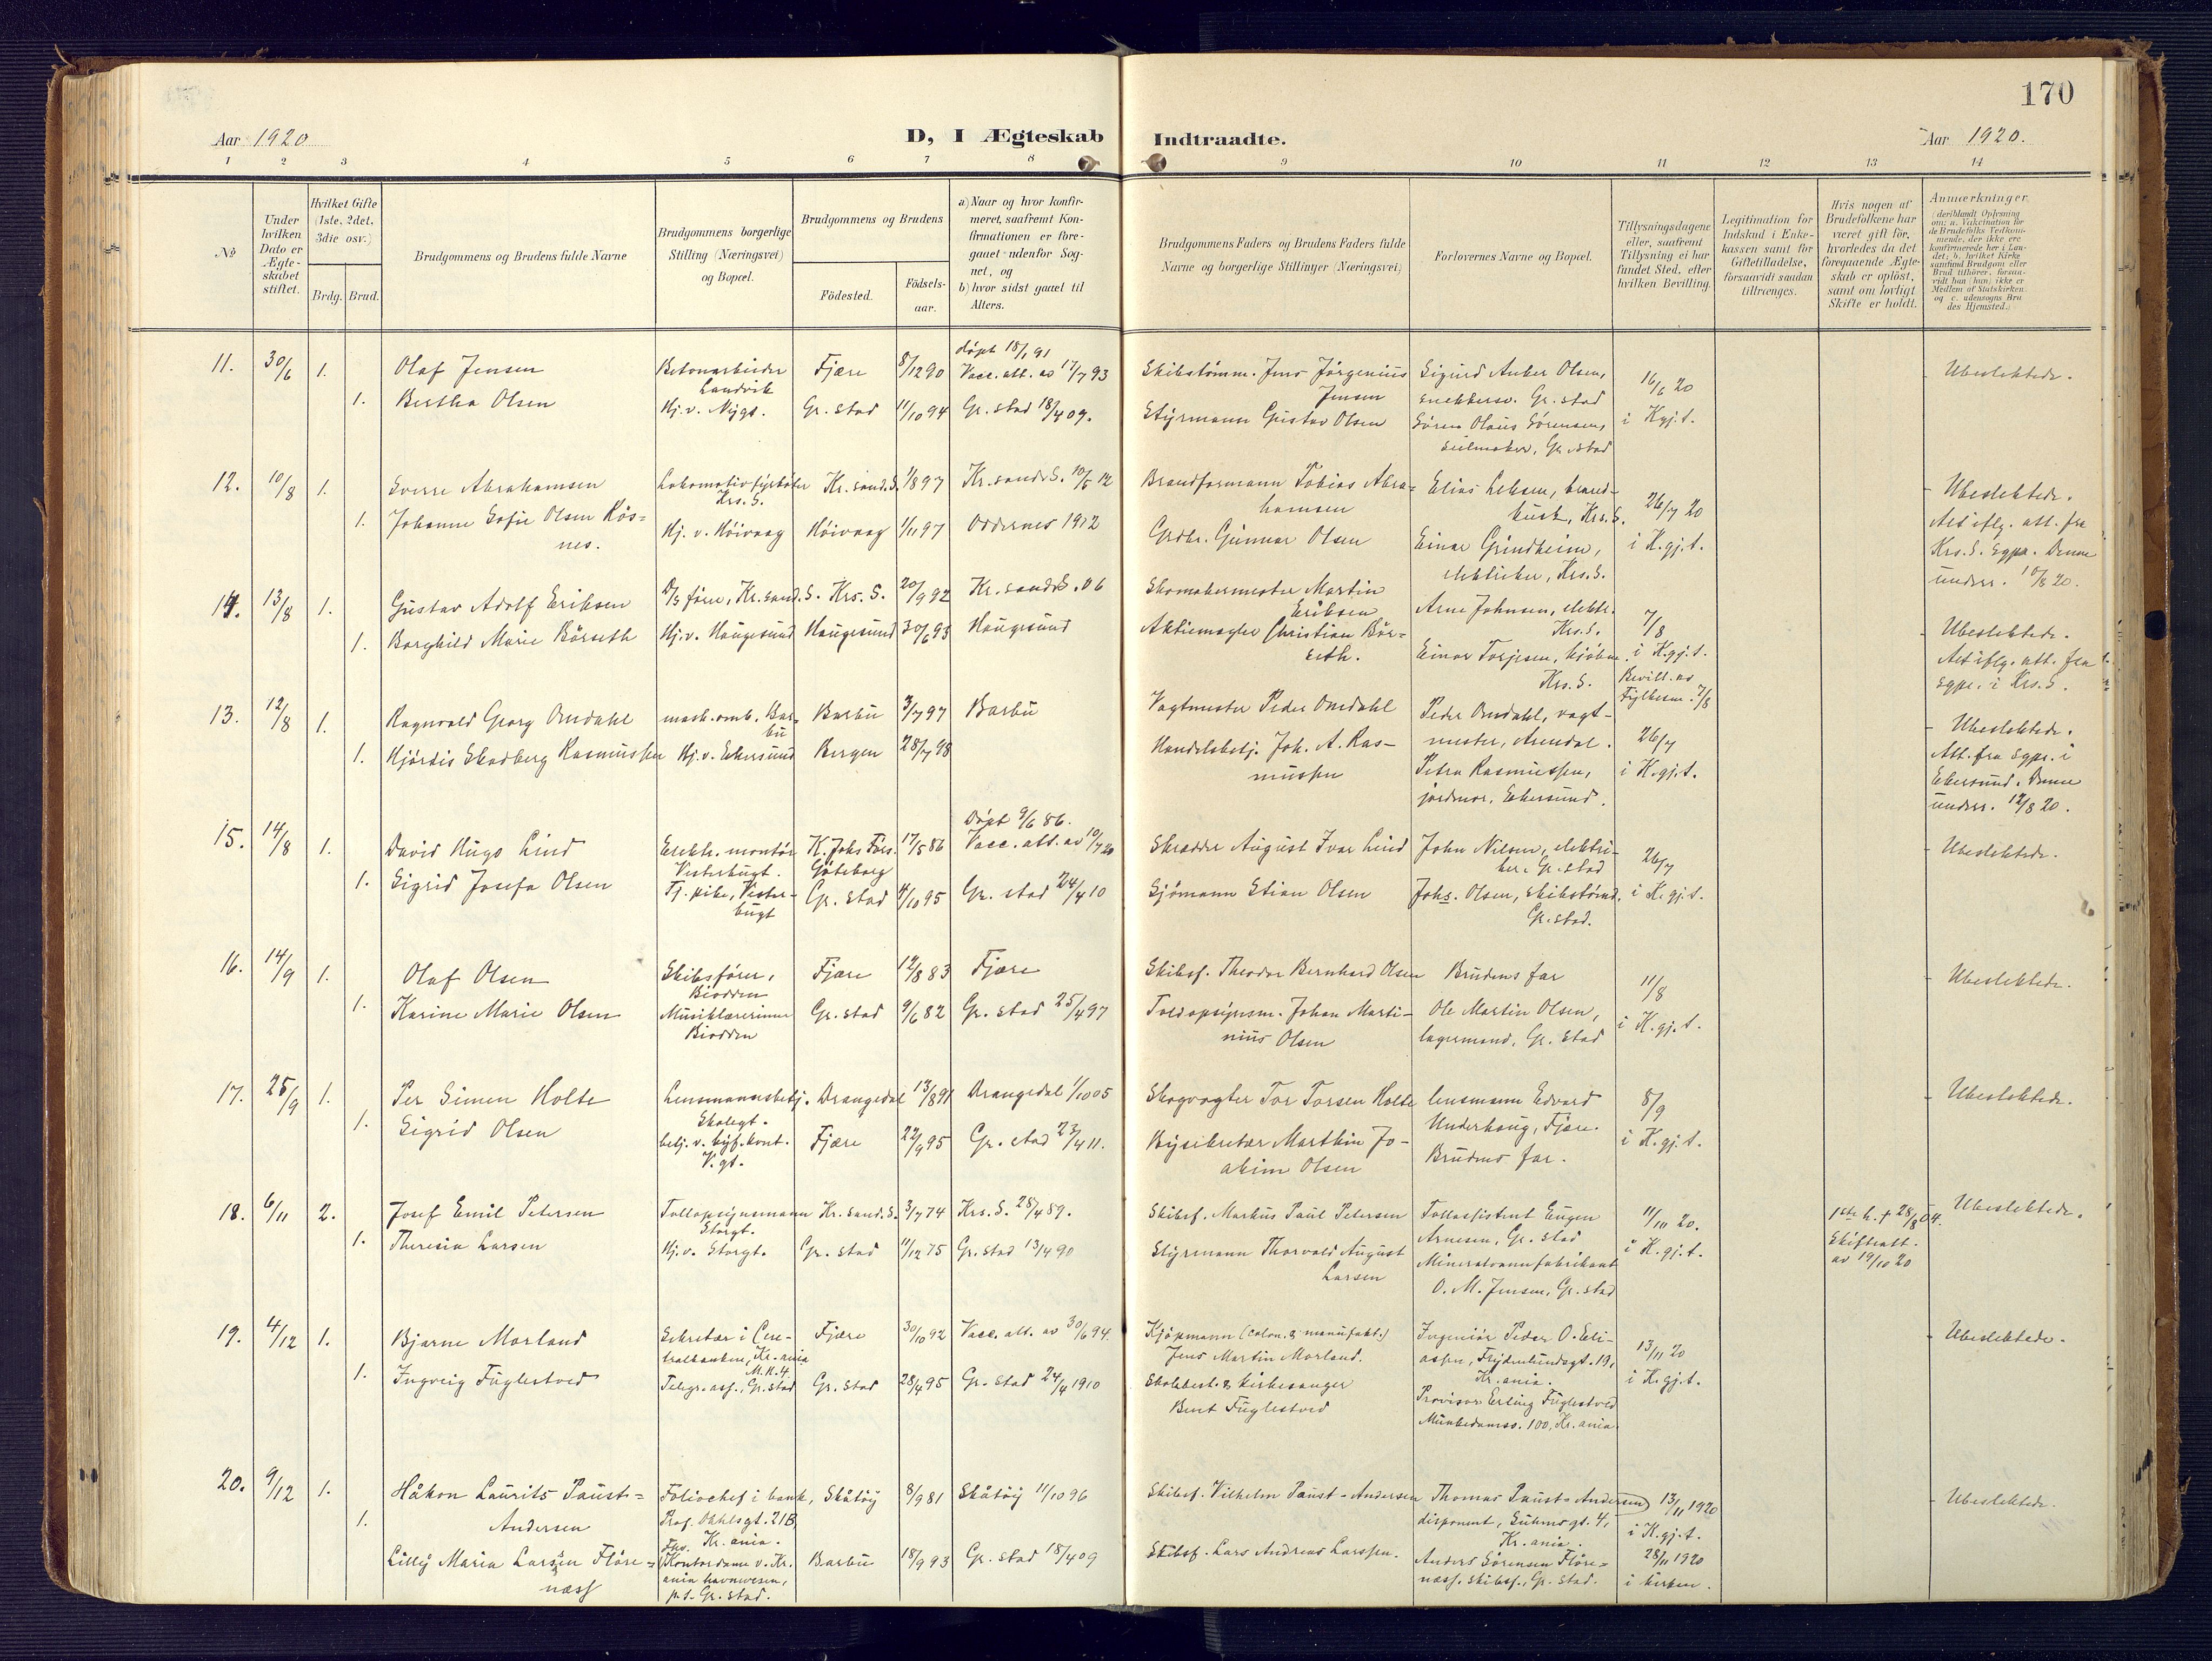 170
Aar 1920
D, I Ægteskab Indtraadte.
Aar 1920.
1 2 3 4 5 6 7 8 9 10 11 12 13 14
No
Under hvilken Dato er Ægte-skabet stiftet.
Hvilket Gifte (1ste, 2det, 3die osv.)
Brdg. Brud.
Brudgommens og Brudens fulde Navne
Brudgommens borgerlige Stilling (Næringsvei) og Bopæl.
Brudgommens og Brudens
Födested.
Födsels-aar.
a) Naar og hvor konfir-meret, saafremt Kon-firmationen er fore-gaaet udenfor Sog-net, og
b) hvor sidst gaaet til Alters.
Brudgommens Faders og Brudens Faders fulde Navne og borgerlige Stillinger (Næringsvei)
Forlovernes Navne og Bopæl.
Tillysningsdagene eller, saafremt Tillysning ei har fundet Sted, efter hvilken Bevilling.
Legitimation for Indskud i Enke-kassen samt for Giftetilladelse, forsaavidt saadan tiltrænges.
Hvis nogen af Brudefolkene har været gift før, hvorledes da det foregaaende Ægte-skab er oplöst, samt om lovligt Skifte er holdt.
Anmærkninger, (deriblandt Oplysning om: a. Vakcination for de Brudefolks Vedkom-mende, der ikke ere konfirmerede her i Lan-det; b. hvilket Kirke-samfund Brudgom eller Brud tilhörer, forsaa-vidt han (hun) ikke er Medlem af Statskirken, og c. udensogns Bru-des Hjemsted.)
11. 30/6 1. Olaf Jensen Betonarbeider Landvik Fjære 8/12 90 døpt 18/1 91 Vacc. att. av 17/7 93 Skibstømm. Jens Jørgenius Jensen Sigurd Anker Olsen, snekkersv. Gr.stad 16/6 20 i Kgj.t. Ubeslektede.
1. Bertha Olsen Hj. v. Nygt. Gr. stad 11/10 94 Gr. stad 18/4 09. Styrmann Gustav Olsen Søren Olaus Sørensen, seilmaker, Gr.stad
12. 10/8 1. Sverre Abrahamsen Lokomotivfyrbøter Krs. S. Kr. sand. S. 1/8 97 Kr. sand S. 10/5 12 Brandformann Tobias Abra=hamsen Elias Leksen, brand-kusk, Krs. S. 26/7 20 i K.gj.t. Ubeslektede. Alt iflg. att. fra Krs. S. sgpr. Denne underr. 10/8 20.
1. Johanne Sofie Olsen Røs=nes. Hj. v. Høivaag Høivaag 1/11 97 Oddernes 1912 Grdbr. Gunnar Olsen Einar Grindheim, elektriker, Krs. S.
14. 13/8 1. Gustav Adolf Eriksen D/s fører, Kr.sand. S. Krs. S. 20/9 92 Kr. sand S. 06 Skomakermester Martin Eriksen Arne Johnsen, elektr. Krs. S. 7/8 i K.gj.t. Bevill. av Fylkesm. 7/8 Ubeslektede. Alt iflg. att. fra sgpr. i Krs. S.
1. Borghild Marie Børseth Hj. v. Haugesund Haugesund 30/6 93 Haugesund Aktiemægler Christian Bør=seth. Einar Torjesen, kjøbm. Krs. S.
13. 12/8 1. Ragnvald Georg Omdahl mask.arb. Bar-bu Barbu 3/7 97 Barbu Vagtmester Peder Omdahl Peder Omdahl, vagt-mester, Arendal. 26/7 i K.gj.t. Ubeslektede. Att. fra sgpr. i Ekersund. Denne underr. 12/8 20.
1. Hjørdis Skadberg Rasmussen Hj. v. Ekersund Bergen 28/7 98 Handelsbetj. Joh. A. Ras-mussen Petra Rasmussen, jordmor, Ekersund.
15. 14/8 1. David Hugo Lind Elektr. montør Vesterbugt. K. Johs Førs. Göteborg 17/5 86 Døpt 9/6 86. Vacc. att. av 10/7 20 Skrædder August Ivar Lind John Nilsen, elektri-ker, Gr. stad 26/7 i K.gj.t. Ubeslektede.
1. Sigrid Josefa Olsen Tj. pike, Vester-bugt Gr. stad 4/10 95 Gr. stad 24/4 10 Sjømann Stian Olsen Johs. Olsen, skibstømm. Gr. stad.
16. 14/9 1. Olaf Olsen Skibsfører, Biodden Fjære 12/8 83 Fjære Skibsf. Theodor Bernhard Olsen Brudens far 11/8 i K.gj.t. Ubeslektede.
1. Karine Marie Olsen Musiklærerinne Biodden Gr. stad 9/6 82 Gr. stad 25/4 97 Toldopsynsm. Johan Marti-nius Olsen Ole Martin Olsen, lagermand, Gr. stad
17. 25/9 1. Per Simen Holte Lensmannsbetj. Skolegt. Drangedal 13/8 91 Drangedal 1/10 05 Skogvogter Tor Torsen Holte Lensmann Edvard Underhaug, Fjære. 8/9 i K.gj.t. Ubeslektede.
1. Sigrid Olsen betj. v. byf.kont. V.gt. Fjære 22/9 95 Gr. stad 23/4 11. Bysekretær Marthin Jo-akim Olsen Brudens far.
18. 6/11 2. Josef Emil Petersen Tollopsynsmann Storgt. Kr. sand. S. 3/7 74 Krs. S. 28/4 89. Skibsf. Markus Paul Petersen Tollassistent Eugen Arnesen, Gr. stad 11/10 20. i K.gj.t. 1ste h. † 28/8 04. Skifteatt. av 19/10 20 Ubeslektede.
1. Theresia Larsen Hj. v. Storgt. Gr. stad 11/12 75 Gr. stad 13/4 90 Styrmann Thorvald August Larsen Mineralvannfabrikant O. M. Jensen, Gr. stad
19. 4/12 1. Bjarne Morland Sekretær i Cen-tralbanken, Kr.ania Fjære 30/10 92 Vacc. att. av 30/6 94. Kjøpmann (colon. & manufakt.) Jens Martin Morland. Ingeniør Peder O. Eeli-assen, Frydenlundsgt. 19, Kr.ania. 13/11 20 i K.gj.t. Ubeslektede.
1. Ingveig Fuglestved Telegr. ass., Gr. stad Gr. stad 28/4 95 Gr. stad 24/4 1910 Skolebest. & kirkesanger Bent Fuglestved Provisor Erling Fuglestved Munkedamsv. 100, Kr.ania.
20. 9/12 1. Håkon Laurits Paust=Andersen Foliochef i bank, Prof. Dahlsgt. 21B, Kr.ania. Skåtøy 8/9 81 Skåtøy 11/10 96 Skibsf. Vilhelm Paust-Andersen Thomas Paust-Andersen disponent, Suhmsgt. 4, Kr.ania. 13/11 1920 i K.gj.t. Ubeslektede.
1. Lilly Maria Larsen Fløre=næss Fhv. Kontordame v. Kr.ania havnvesen, p.t. Gr. stad. Barbu 18/9 93 Gr. stad 18/4 09 Skibsf. Lars Andreas Larssen. Anders Sörensen Flöre=næss, skibsf., Gr. stad. 28/11 1920 i kirken.